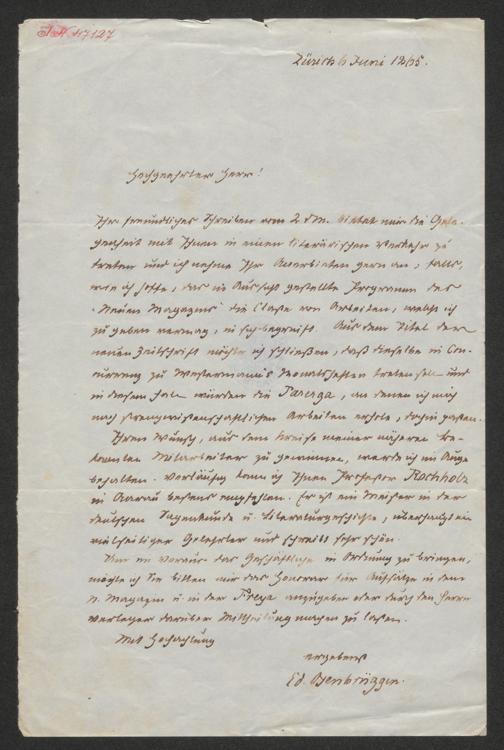 I.N. 47127
Zürich 6 Juni 1865.
Hochgeehrter Herr!
Ihr freundliches Schreiben vom 2 d M. bietet mir die Gele-
genheit mit Ihnen in einen literärischen Verkehr zu
treten und ich nehme Ihr Anerbieten gern an, falls,
wie ich hoffe, das in Aussicht gestellte Programm des
"Neuen Magazins" die Classe von Arbeiten, welche ich
zu geben vermag, in sich begreift. Aus dem Titel der
neuen Zeitschrift möchte ich schließen, daß dieselbe in Con-
currenz zu Westermann's Monatsheften treten soll und
in diesem Falle würden die Parerga, an denen ich mich
nach strengwissenschaftlichen Arbeiten erhole, dahin passen.
Ihren Wunsch, aus dem Kreise meiner näheren Be-
kannten Mitarbeiter zu gewinnen, werde ich im Auge
behalten. Vorläufig kann ich Ihnen Professor Rochholz
in Aarau bestens empfehlen. Er ist ein Meister in der
deutschen Sagenkunde u. Literaturgeschichte, überhaupt ein
vielseitiger Gelehrter und schreibt sehr schön.
Um im Voraus das Geschäftliche in Ordnung zu bringen,
möchte ich Sie bitten mir das Honorar für Aufsätze in dem
N. Magazin u in der Freya anzugeben oder durch den Herrn
Verleger darüber Mittheilung machen zu lassen.
Mit Hochachtung
ergebenst
Ed. Osenbrüggen.